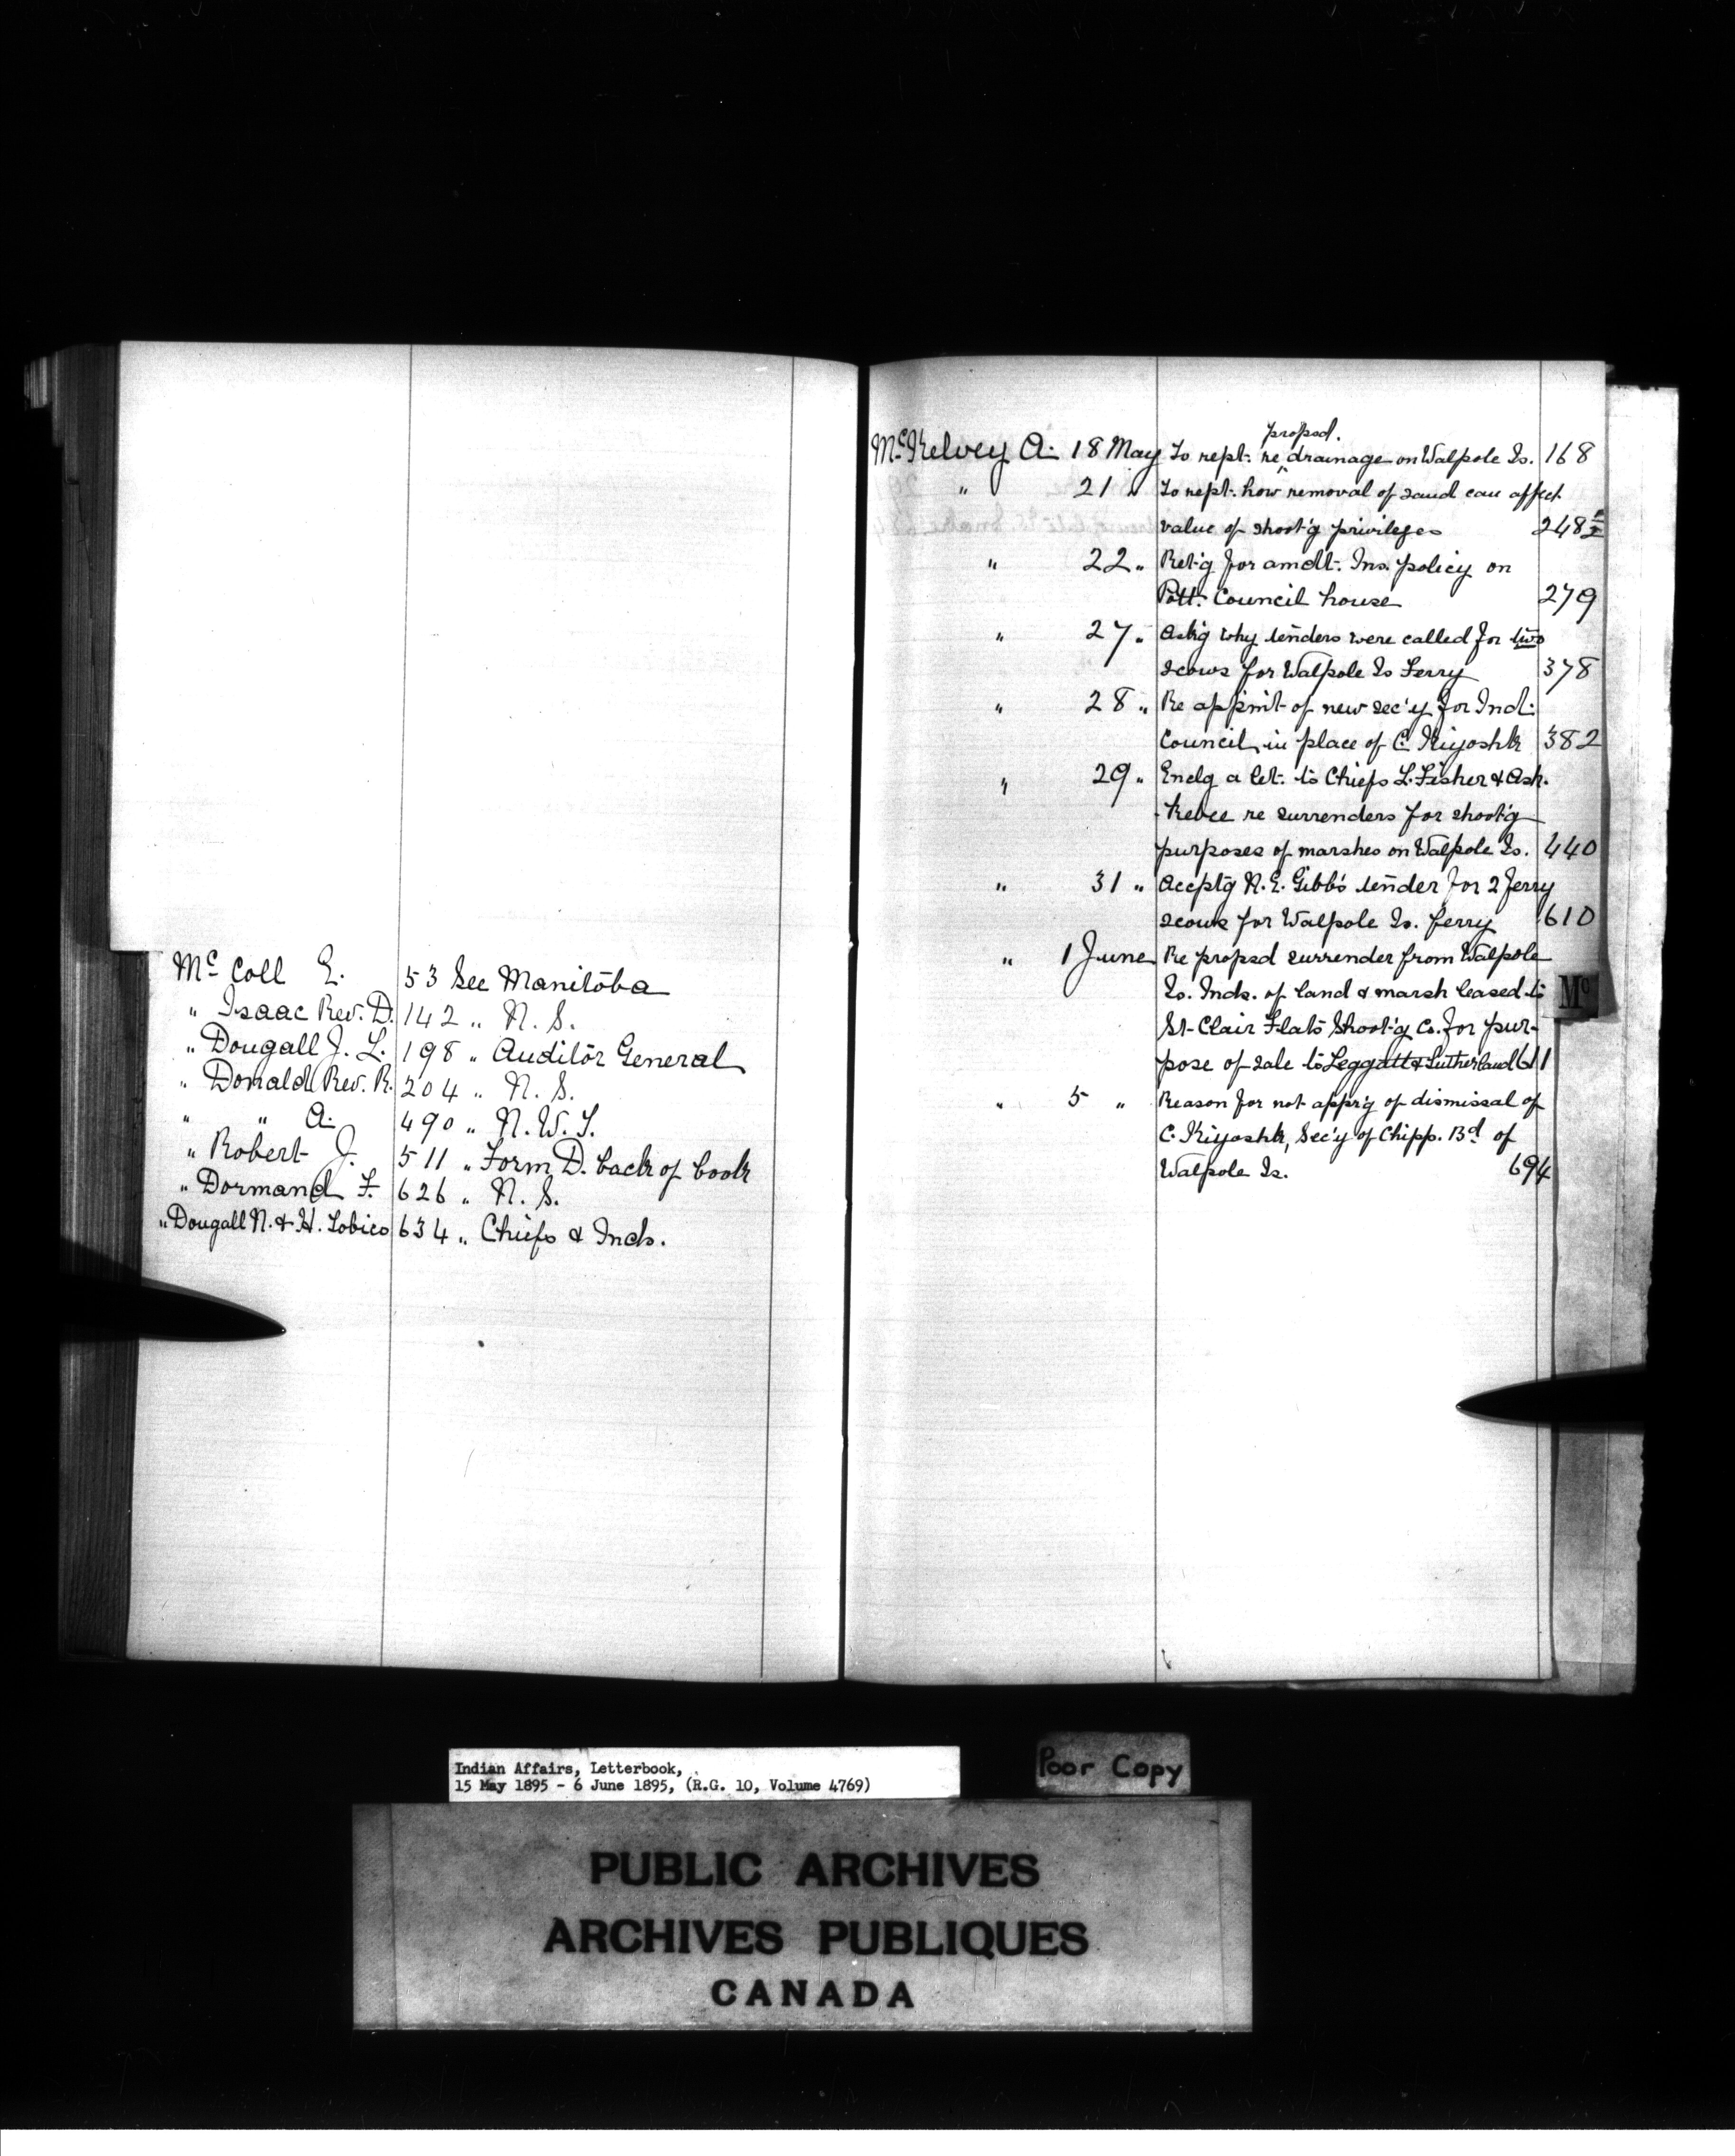 Mc Coll E. 53 See Manitoba
" Isaac Rev. D. 142 " N. S.
" Dougall J. L. 198 " Auditor General
" Donald Rev. R. 204 " N. S.
" " A. 490 " N. W. T.
" Robert J. 511 " Form D. back of book
" Dormand F. 626 " N. S.
" Dougall N. & H. Tobico 634 " Chiefs & Inds.
propsd.
McKelvey A. 18 May To rept. re drainage on Walpole Is. 168
" 21 " To rept. how removal of sand can affect
value of shoot'g privileges 248
" 22 " Ret'g for amdt. Ins. policy on
Pott. Council house 279
" 27 " Ask'g why tenders were called for two
scows for Walpole Is Ferry 378
" 28 " Re appmt of new sec'y for Ind.
Council in place of C. Kiyoshk 382
" 29 " Enclg a let. to Chiefs L. Fisher & Ash-
-kebee re surrenders for shoot'g
purposes of marshes on Walpole Is. 440
" 31 " Accptg N. E. Gibb's tender for 2 ferry
scows for Walpole Is. ferry 610
" 1 June Re propsd surrender from Walpole
Is. Inds. of land & marsh leased to
St. Clair Flats Shoot'g Co. for pur-
pose of sale to Leggatt & Sutherland 611
" 5 " Reason for not appr'g of dismissal of
C. Kiyoshk, Sec'y of Chipp. Bd. of
Walpole Is. 694
Mc
Indian Affairs, Letterbook,
15 May 1895 - 6 June 1895, (R.G. 10, Volume 4769)
Poor Copy
PUBLIC ARCHIVES
ARCHIVES PUBLIQUES
CANADA